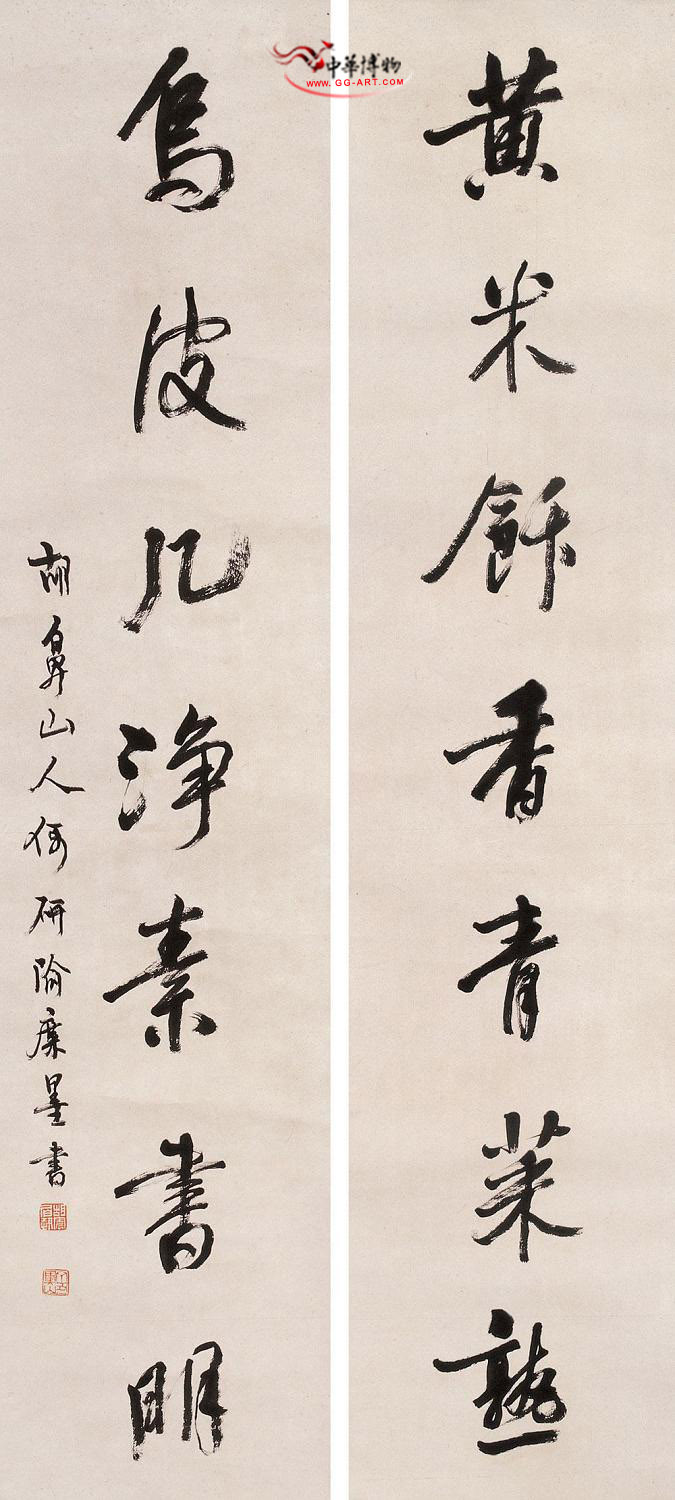 中華博物
WWW.GG-ART.COM
黄米飰香青菜熟
烏皮几淨素書明
胡鼻山人研隃糜墨書